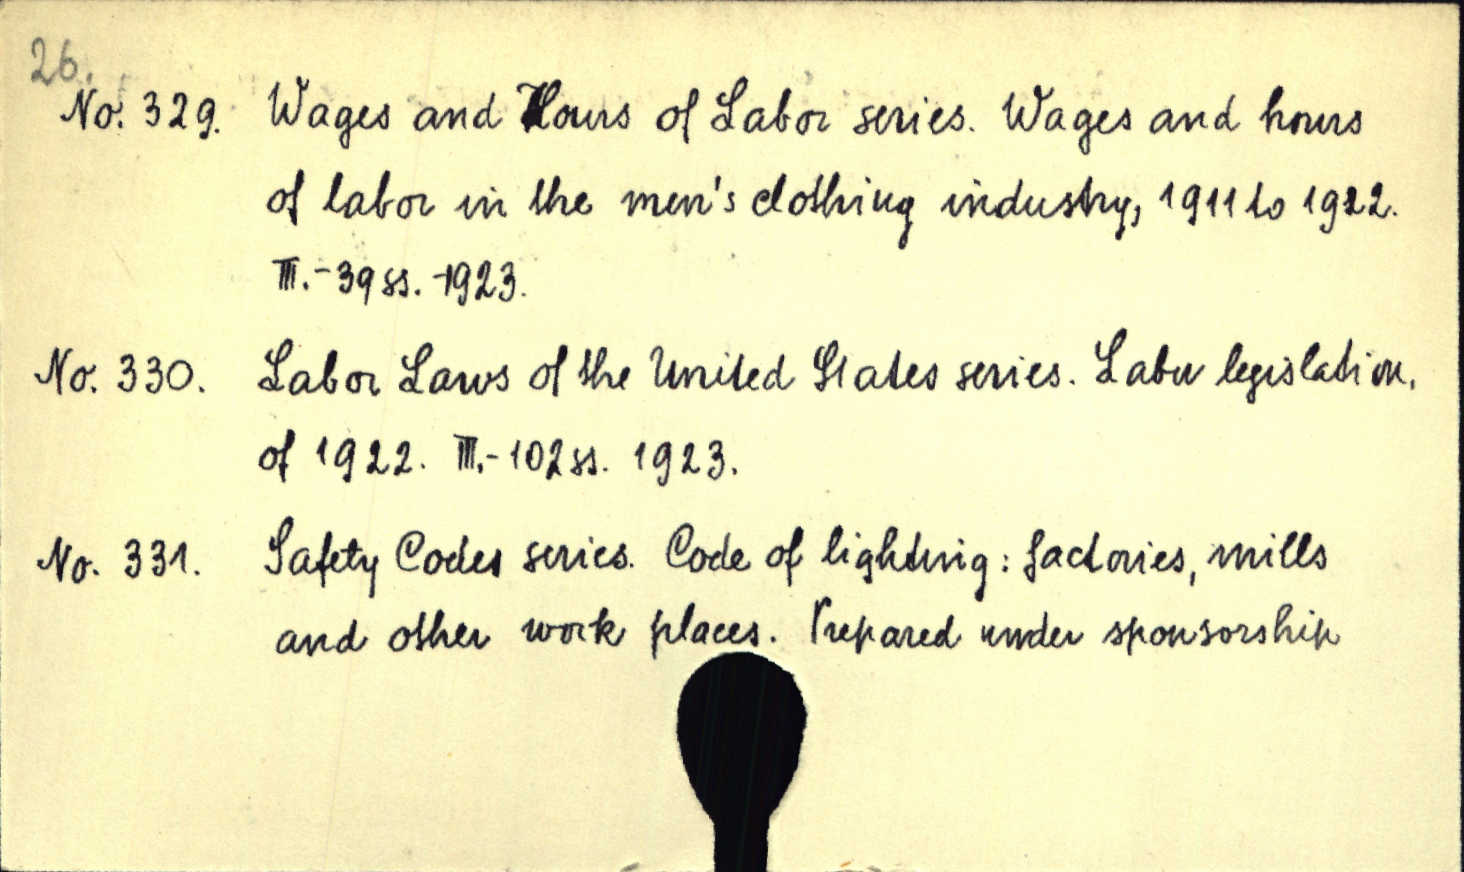 26.
No. 329. Wages and Hours of Labor series. Wages and hours
of labor in the men's clothing industry, 1911 to 1922.
III.-39 ss. -1923.
No. 330. Labor Laws of the United States series. Labor legislation,
of 1922. III.-102 ss. 1923.
No. 331. Safety Codes series. Code of lighting: factories, mills
and other work places. Prepared under sponsorship